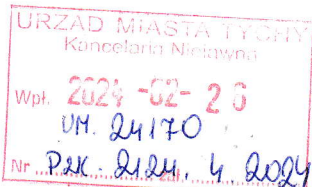 URZĄD MIASTA TYCHY
Kancelaria Niejawna
Wpł. 2024 -02- 26
UM. 24170
Nr PZK. 2124. 4. 2024